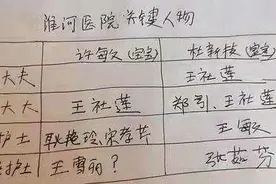 淮河医院关键人物
许敏(宝宝) 杜新枝(宝宝)
大夫 王社莲
大夫 王社莲 郑引、王社莲
护士 耿艳玲、宋荐芹 王敏
护士 王雪丽? 张茹芬